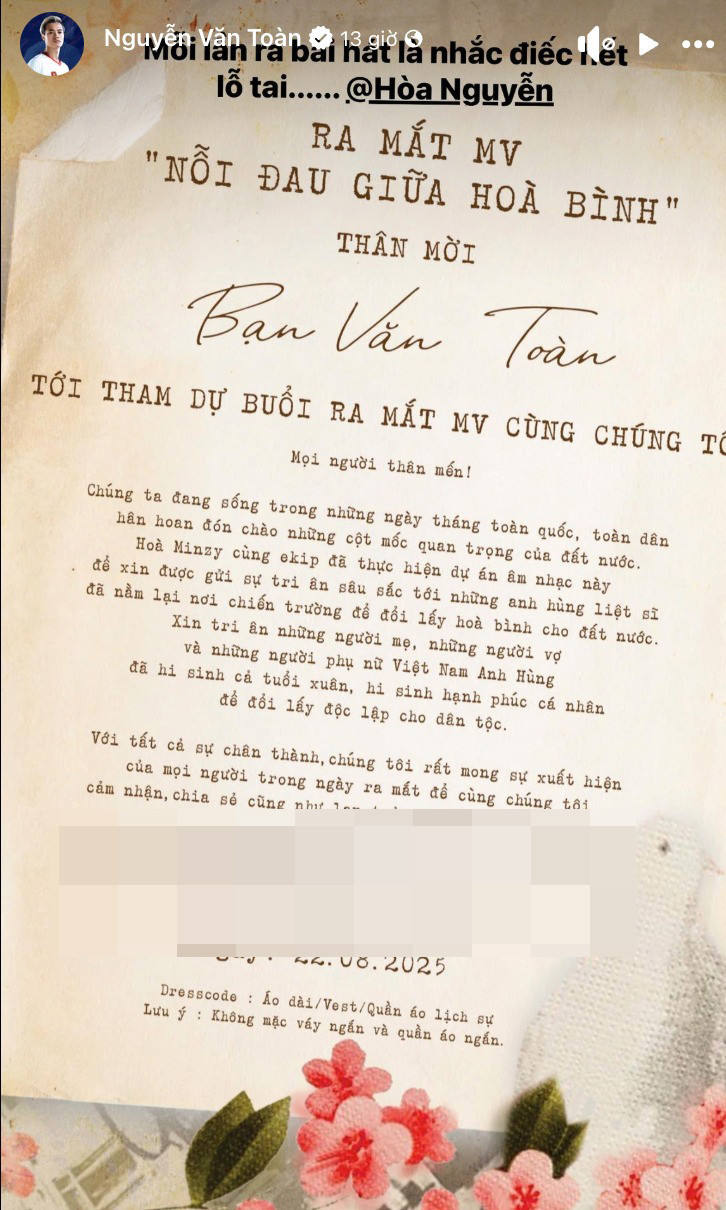 Nguyễn Văn Toàn 13 giờ
Mỗi lần ra bài hát là nhắc điếc hết
lỗ tai...... @Hòa Nguyễn
RA MẮT MV
"NỖI ĐAU GIỮA HOÀ BÌNH"
THÂN MỜI
Bạn Văn Toàn
TỚI THAM DỰ BUỔI RA MẮT MV CÙNG CHÚNG TÔ
Mọi người thân mến!
Chúng ta đang sống trong những ngày tháng toàn quốc, toàn dân
hân hoan đón chào những cột mốc quan trọng của đất nước.
Hoà Minzy cùng ekip đã thực hiện dự án âm nhạc này
để xin được gửi sự tri ân sâu sắc tới những anh hùng liệt sĩ
đã nằm lại nơi chiến trường để đổi lấy hoà bình cho đất nước.
Xin tri ân những người mẹ, những người vợ
và những người phụ nữ Việt Nam Anh Hùng
đã hi sinh cả tuổi xuân, hi sinh hạnh phúc cá nhân
để đổi lấy độc lập cho dân tộc.
Với tất cả sự chân thành,chúng tôi rất mong sự xuất hiện
của mọi người trong ngày ra mắt để cùng chúng tôi
cảm nhận,chia sẻ cũng như
22.08.2025
Dresscode : Áo dài/Vest/Quần áo lịch sự
Lưu ý : Không mặc váy ngắn và quần áo ngắn.